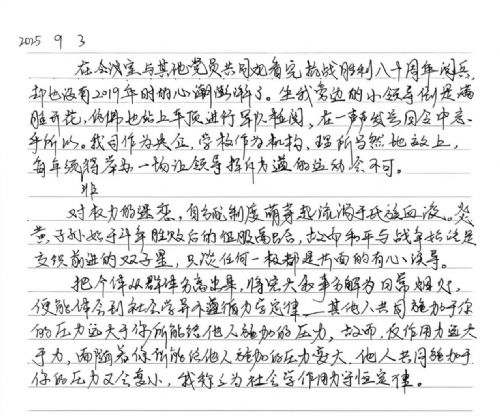 2025 9 3
在会议室与其他党员共同观看完抗战胜利八十周年阅兵,
却也没有2019年时的心潮澎湃了。坐我旁边的小领导倒是满
脸开花,仿佛也站上车顶进行军队检阅,在一声声
我司作为央企,学校作为机构,理所当然地效上,
每年须得举办一场让领导挥斥方遒的运动会不可。
非
对权力的迷恋,自台制度萌芽起流淌于氏族血液。炎
黄子孙始于斗年胜败后的征服与媾合,故而和平与战争始终是
交织前进的双子星,只谈任何一极都是片面的有心误导。
把个体从群体分离出来,将宏大叙事分解为日常烟火时,
便能体会到社会学异不遵循力学定律——其他人共同施加于你
的压力远大于你所能给他人施加的压力,故而,反作用力远大
于力,而随着你所能给他人施加的压力变大,他人共同施加于
你的压力又会变小,我称之为社会学作用力守恒定律。